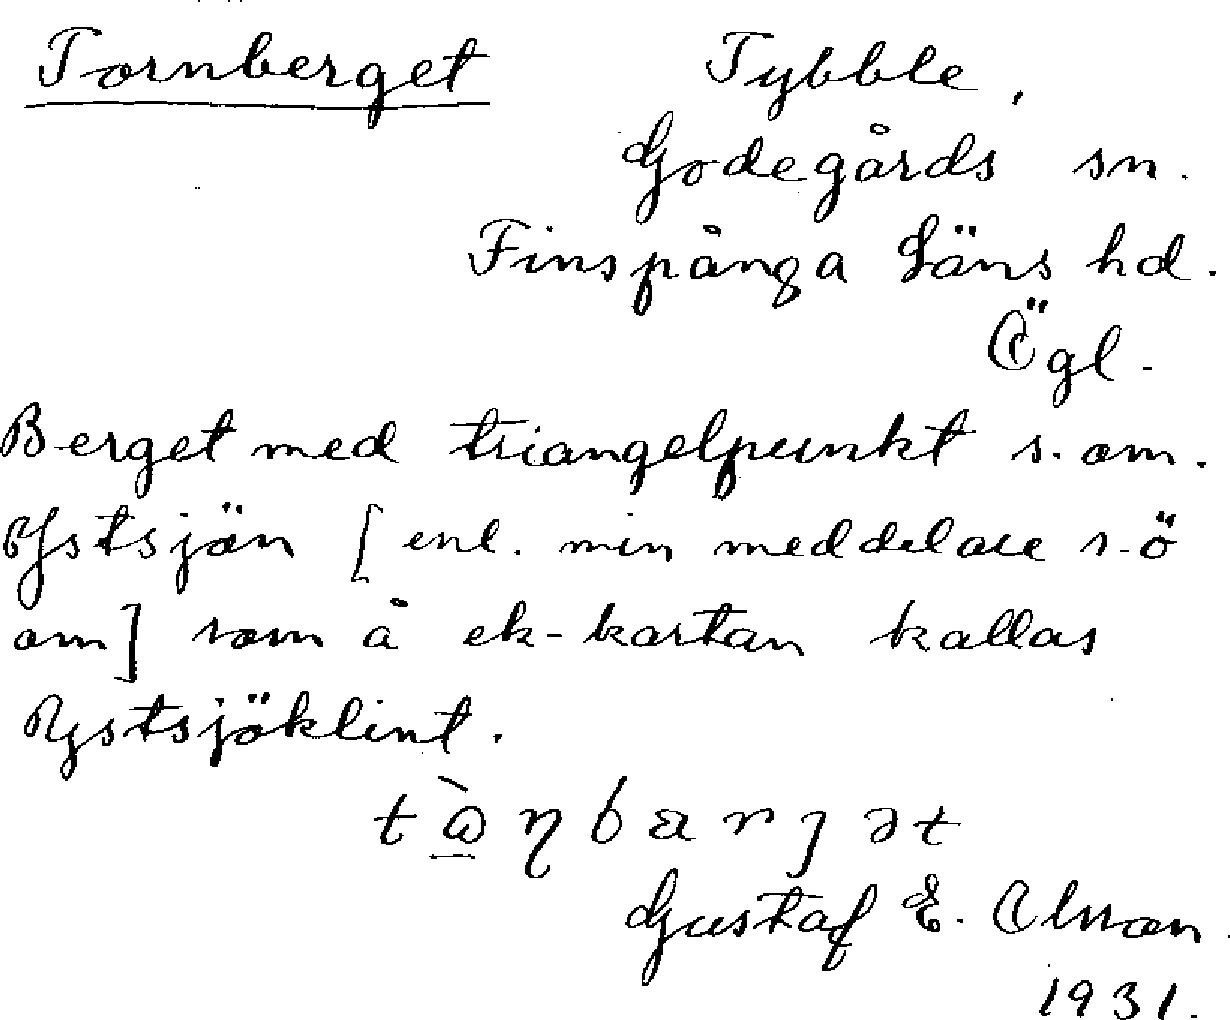 Tornberget Tybble,
Godegårds sn.
Finspånga Läns hd.
Ögl.
Berget med triangelpunkt s. om.
Ystsjön [enl. min meddelare s.ö
om] som å ek-kartan kallas
Ystsjöklint.
Gustaf E. Olsson.
1931.